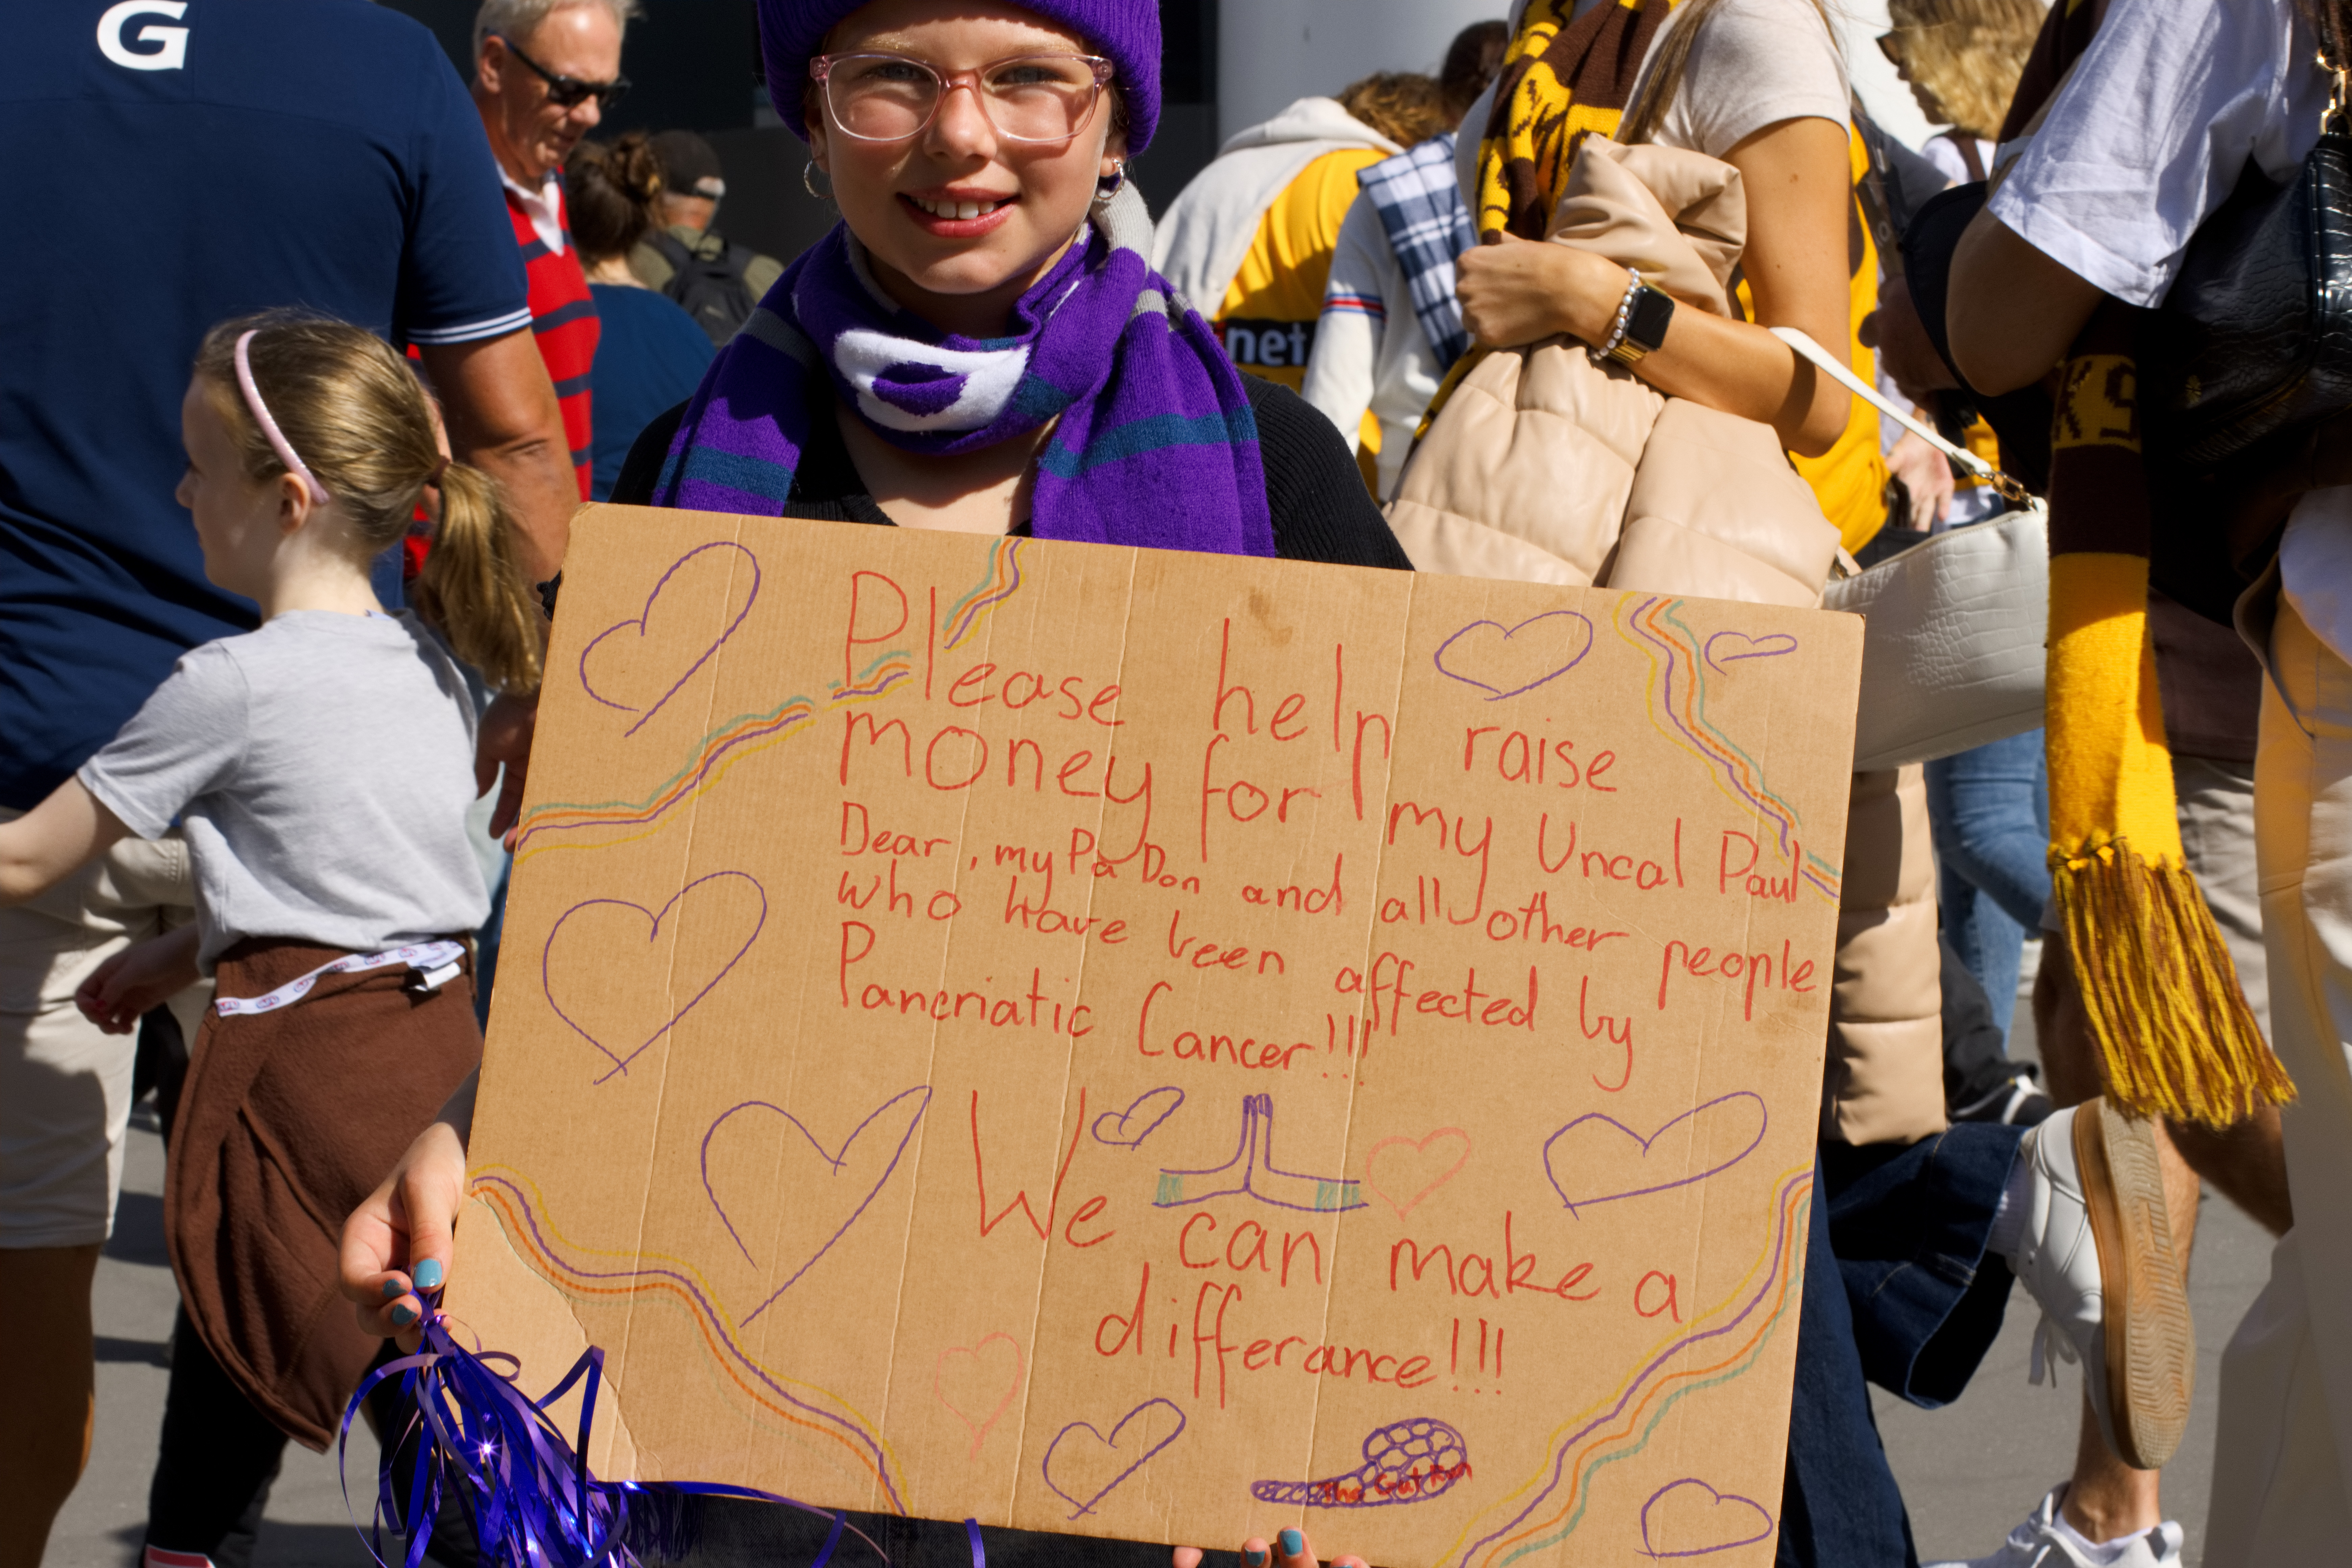 G
net
KS
Please help raise
money for my Uncal Paul
Dear, my Pa Don and all other people
who have been affected by
Pancriatic Cancer!!!
We can make a
differance!!!
The Gut Run